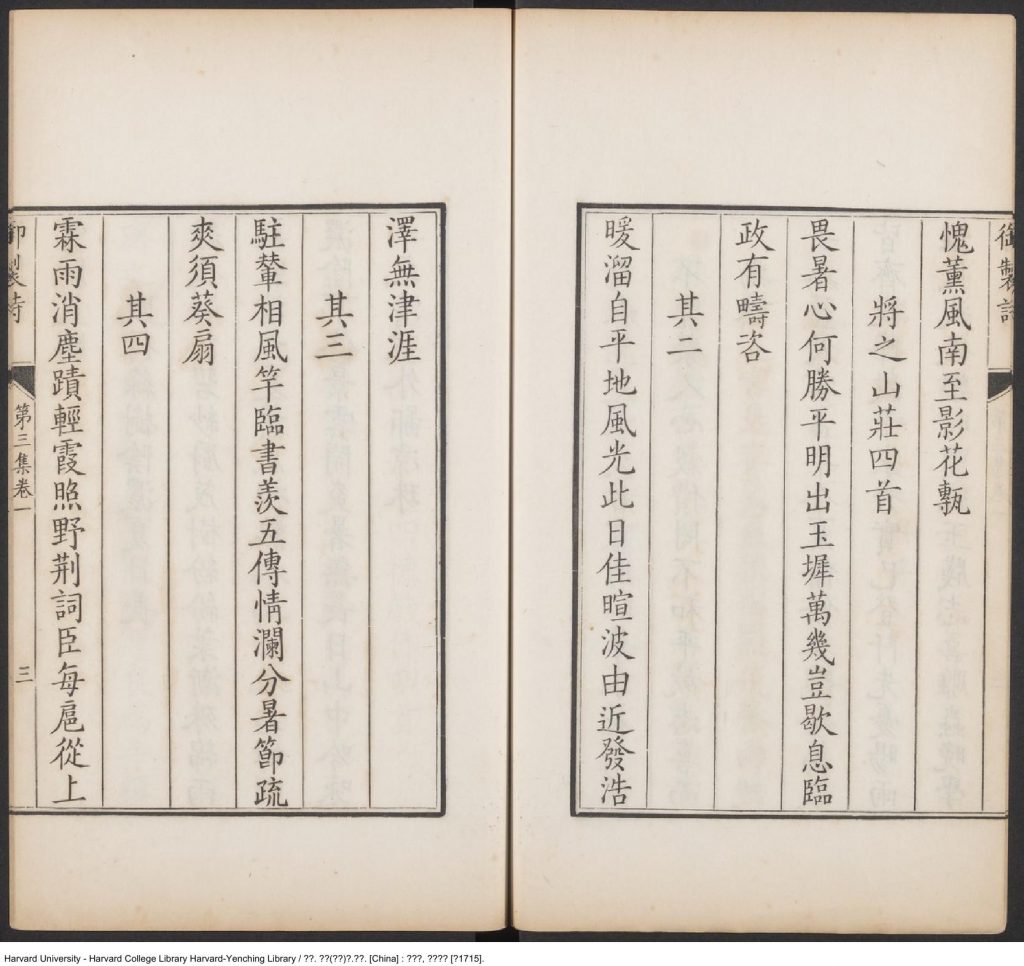 御製詩
愧薰風南至影花甎
將之山莊四首
畏暑心何勝平明出玉墀萬幾豈歇息臨
政有疇咨
其二
暖溜自平地風光此日佳暄波由近發浩
澤無津涯
其三
駐輦相風竿臨書羨五傳情瀾分暑節疏
爽須葵扇
其四
霖雨消塵蹟輕霞照野荆詞臣每扈從上
御製詩 第三集卷一 三
Harvard University - Harvard College Library Harvard-Yenching Library / ??. ??(??)?.??. [China] : ???, ???? [?1715].